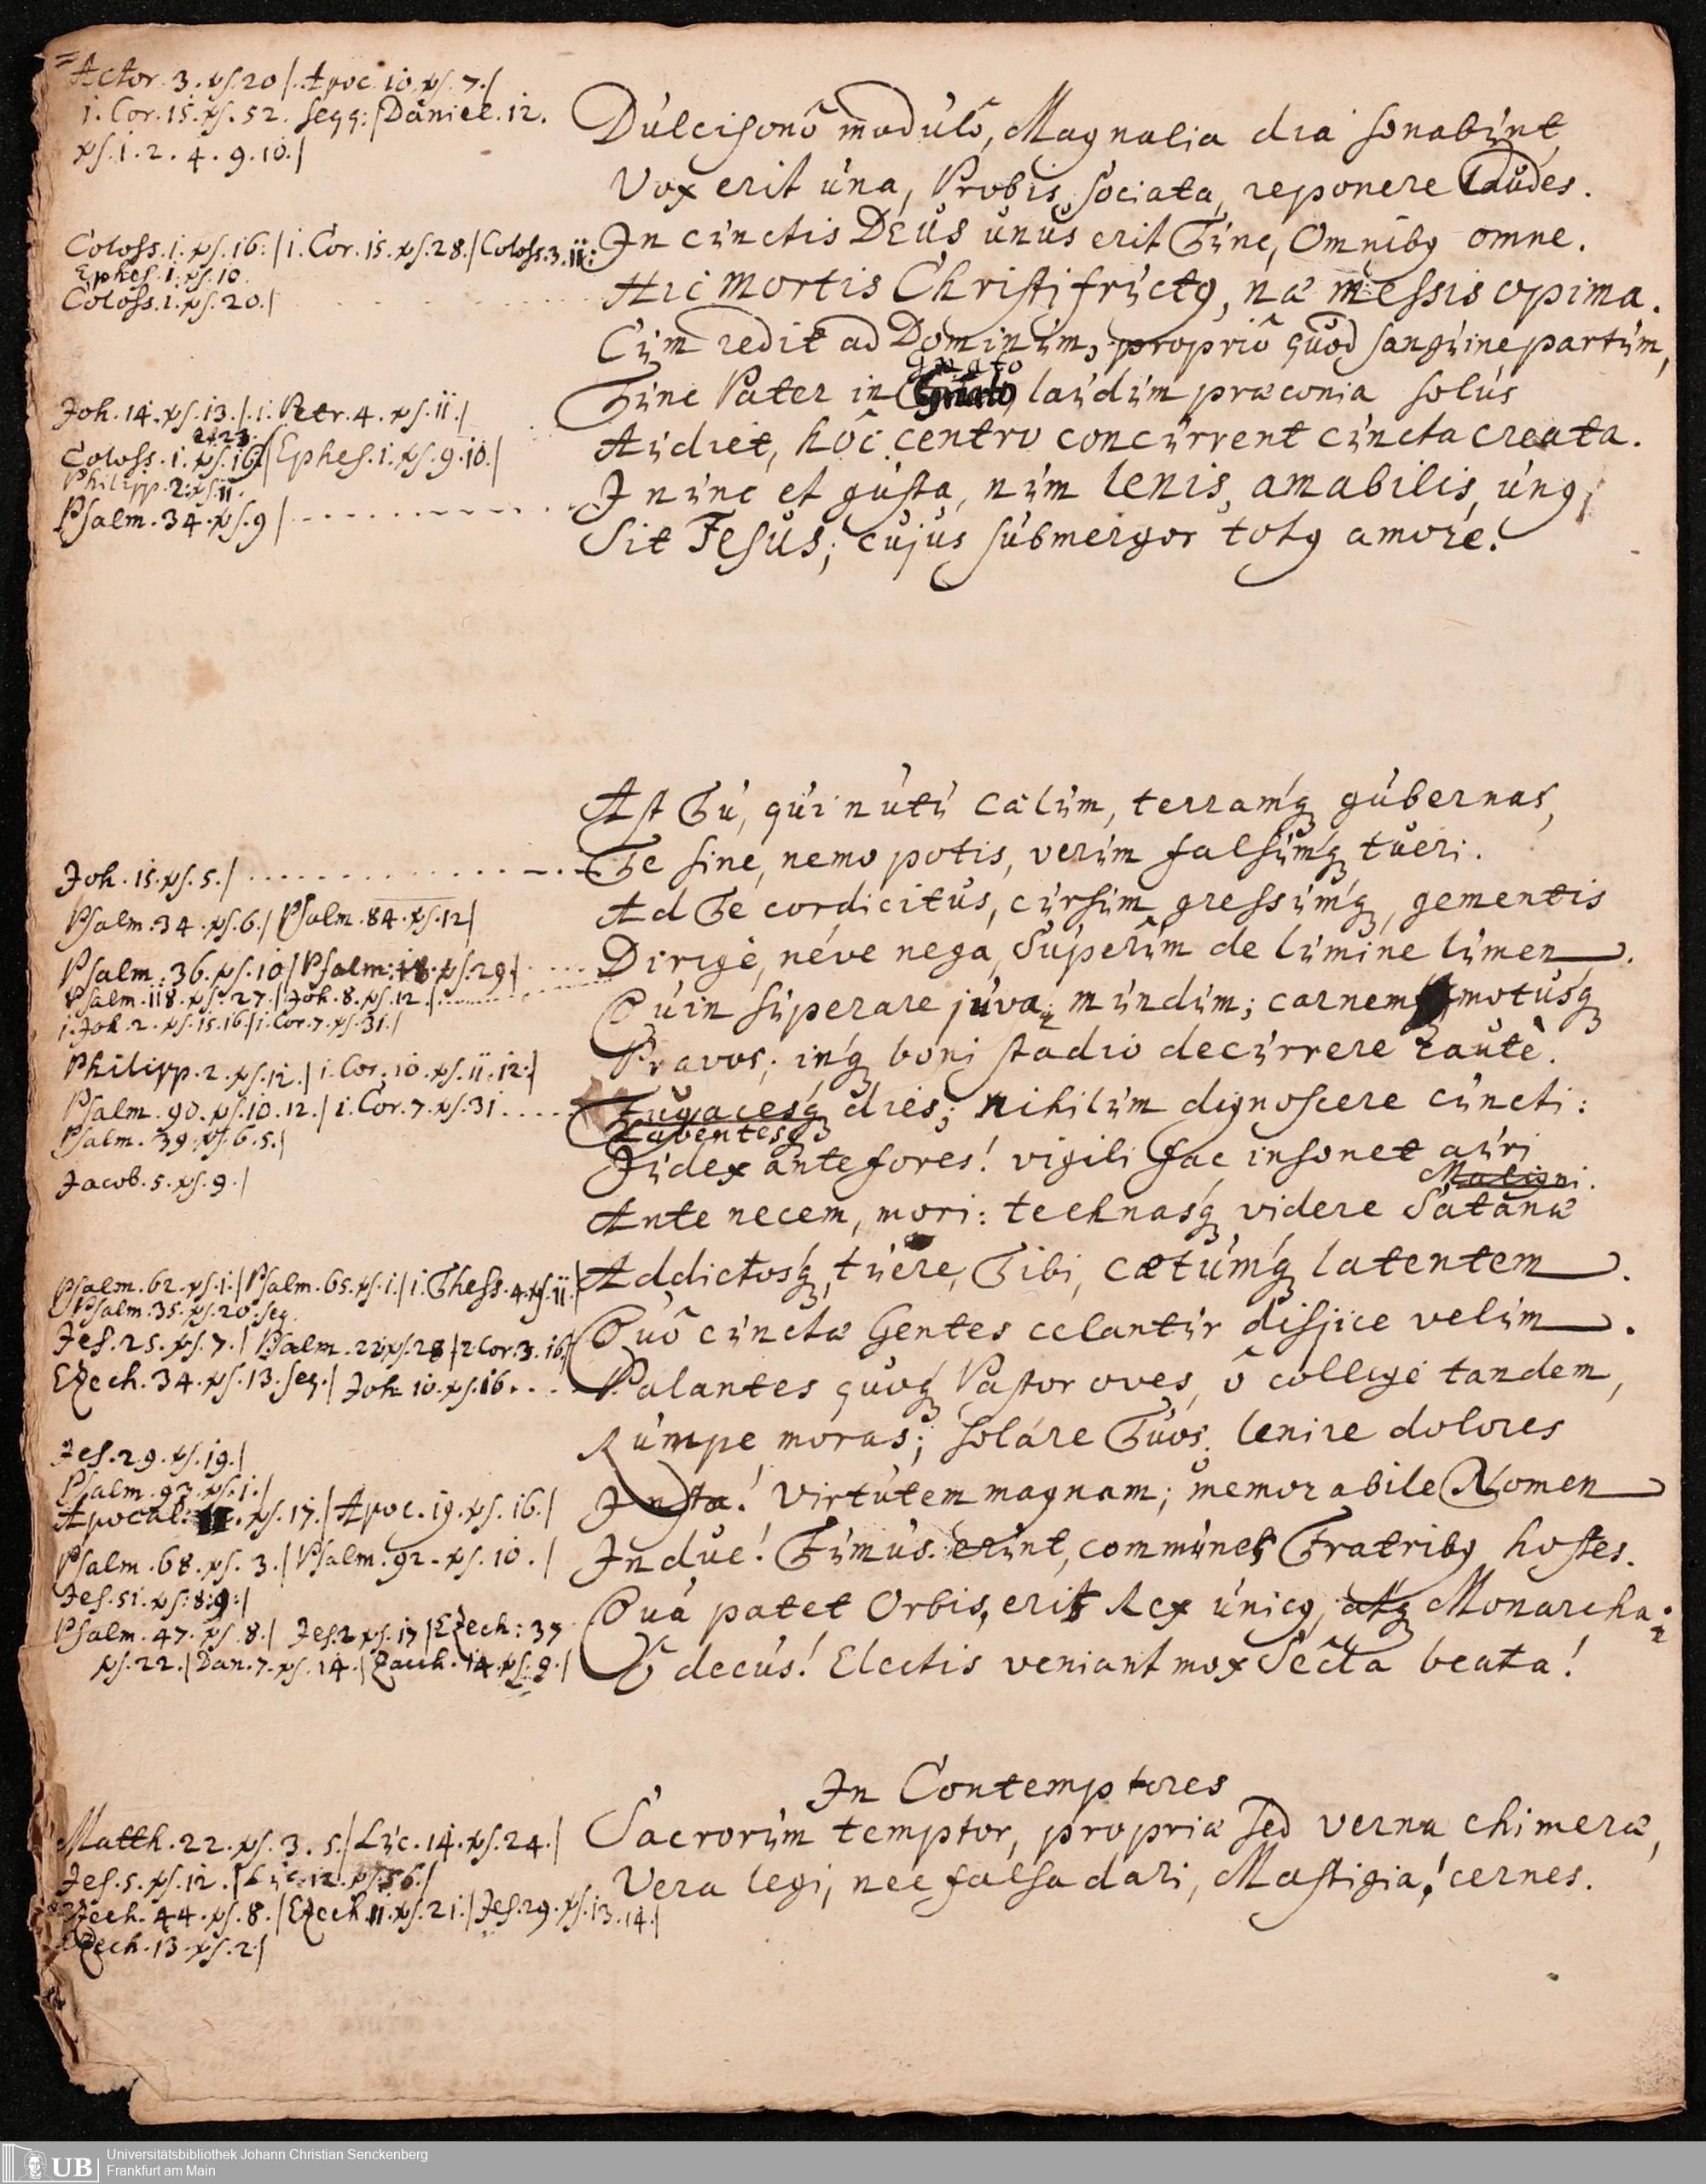 Actor. 3. vs. 20 / Apoc. 10. vs. 7. /
1. Cor. 15. vs. 52. seqq: / Daniel. 12.
vs. 1. 2. 4. 9. 10. /
Dulcisonô modulô, Magnalia dia sonabunt,
Vox erit una, Probis sociata, reponere laudes.
Coloss. 1. vs. 16: / 1. Cor. 15. vs. 28. / Coloss. 3. 11:
In cunctis DEUS unus erit Tunc, Omnibq omne.
Ephes. 1. vs. 10.
Coloss. 1. vs. 20. /
Hic mortis Christi fructq, næ messis opima.
Cum redit ad Dominum, propriô quod sanguine partum,
gnato
Joh. 14. vs. 13. / 1. Petr. 4. vs. 11. /
Tunc Pater in Gnato laudum præconia solus
Coloss. 1. vs. 16. / Ephes. 1. vs. 9. 10. /
Audiet, hôc centro concurrent cuncta creata.
Philipp. 2. vs. 11.
Psalm. 34. vs. 9 /
I nunc et gusta, num lenis, amabilis, unq
Sit Jesus; cujus submergor totq amore.
Ast Tu, qui nutu cælum, terramq́ gubernas,
Joh. 15. vs. 5. /
Te sine, nemo potis, verum falsumq́ tueri.
Psalm. 34. vs. 6. / Psalm. 84. vs. 12 /
Ad Te cordicitus, cursum gressumq́, gementis
Psalm. 36. vs. 10 / Psalm. 18. vs. 29 /
Dirige, néve nega, Superûm de lumine lumen.
Psalm. 118. vs. 27. / Joh. 8. vs. 12. /
1. Joh. 2. vs. 15. 16. / 1. Cor. 7. vs. 31. /
Quin superare juva; mundum; carnem motusq́
Philipp. 2. vs. 12. / 1. Cor. 10. vs. 11. 12. /
Pravos; inq́ boni stadio decurrere cautè.
Psalm. 90. vs. 10. 12. / 1. Cor. 7. vs. 31
Fugacesq́ dies; nihilum dignoscere cuncti:
Labentesq́
Psalm. 39. vs. 6. 5. /
Judex ante fores! vigili fac insonet auri
Jacob. 5. vs. 9. /
Maligni.
Ante necem, mori: technasq́ videre Satanæ
Psalm. 62. vs. 1. / Psalm. 65. vs. 1. / 1. Thess. 4. vs. 11. /
Addictosq́, tuere, Tibi, cætumq́ latentem.
Psalm. 35. vs. 20. seq.
Jes. 25. vs. 7. / Psalm. 22. vs. 28 / 2 Cor. 3. 16 /
Quô cunctæ Gentes celantur disjice velum.
Ezech. 34. vs. 13. seq. / Joh. 10. vs. 16.
Palantes quoq́, Pastor oves, ô collige tandem,
Jes. 29. vs. 19. /
Rumpe moras; solare Tuos, lenire dolores
Psalm. 93. vs. 1. /
Apocal: 11. vs. 17. / Apoc. 19. vs. 16. /
Insta! virtutem magnam; memorabile Nomen
Psalm. 68. vs. 3. / Psalm. 92. vs. 10. /
Indue! Fumus erunt, communes Fratribq hostes.
Jes. 51. vs. 8: 9: /
Quà patet Orbis, erit Rex unicq, atq́ Monarcha:
Psalm. 47. vs. 8. / Jes. 2 vs. 17 / Ezech: 37
vs. 22. / Dan. 7. vs. 14. / Zach. 14. vs. 9. /
O decus! Electis veniant mox Secla beata!
In Contemptores
Matth. 22. vs. 3. 5. / Luc. 14. vs. 24. /
Sacrorum temptor, propriæ sed verna chimeræ,
Jes. 5. vs. 12. / Luc. 12. vs. 56. /
Vera legi, nec falsa dari, Mastigia! cernes.
Ezech. 44. vs. 8. / Ezech. 11. vs. 21. / Jes. 29. vs. 13. 14. /
Zech. 13. vs. 2 /
UB
Universitätsbibliothek Johann Christian Senckenberg
Frankfurt am Main